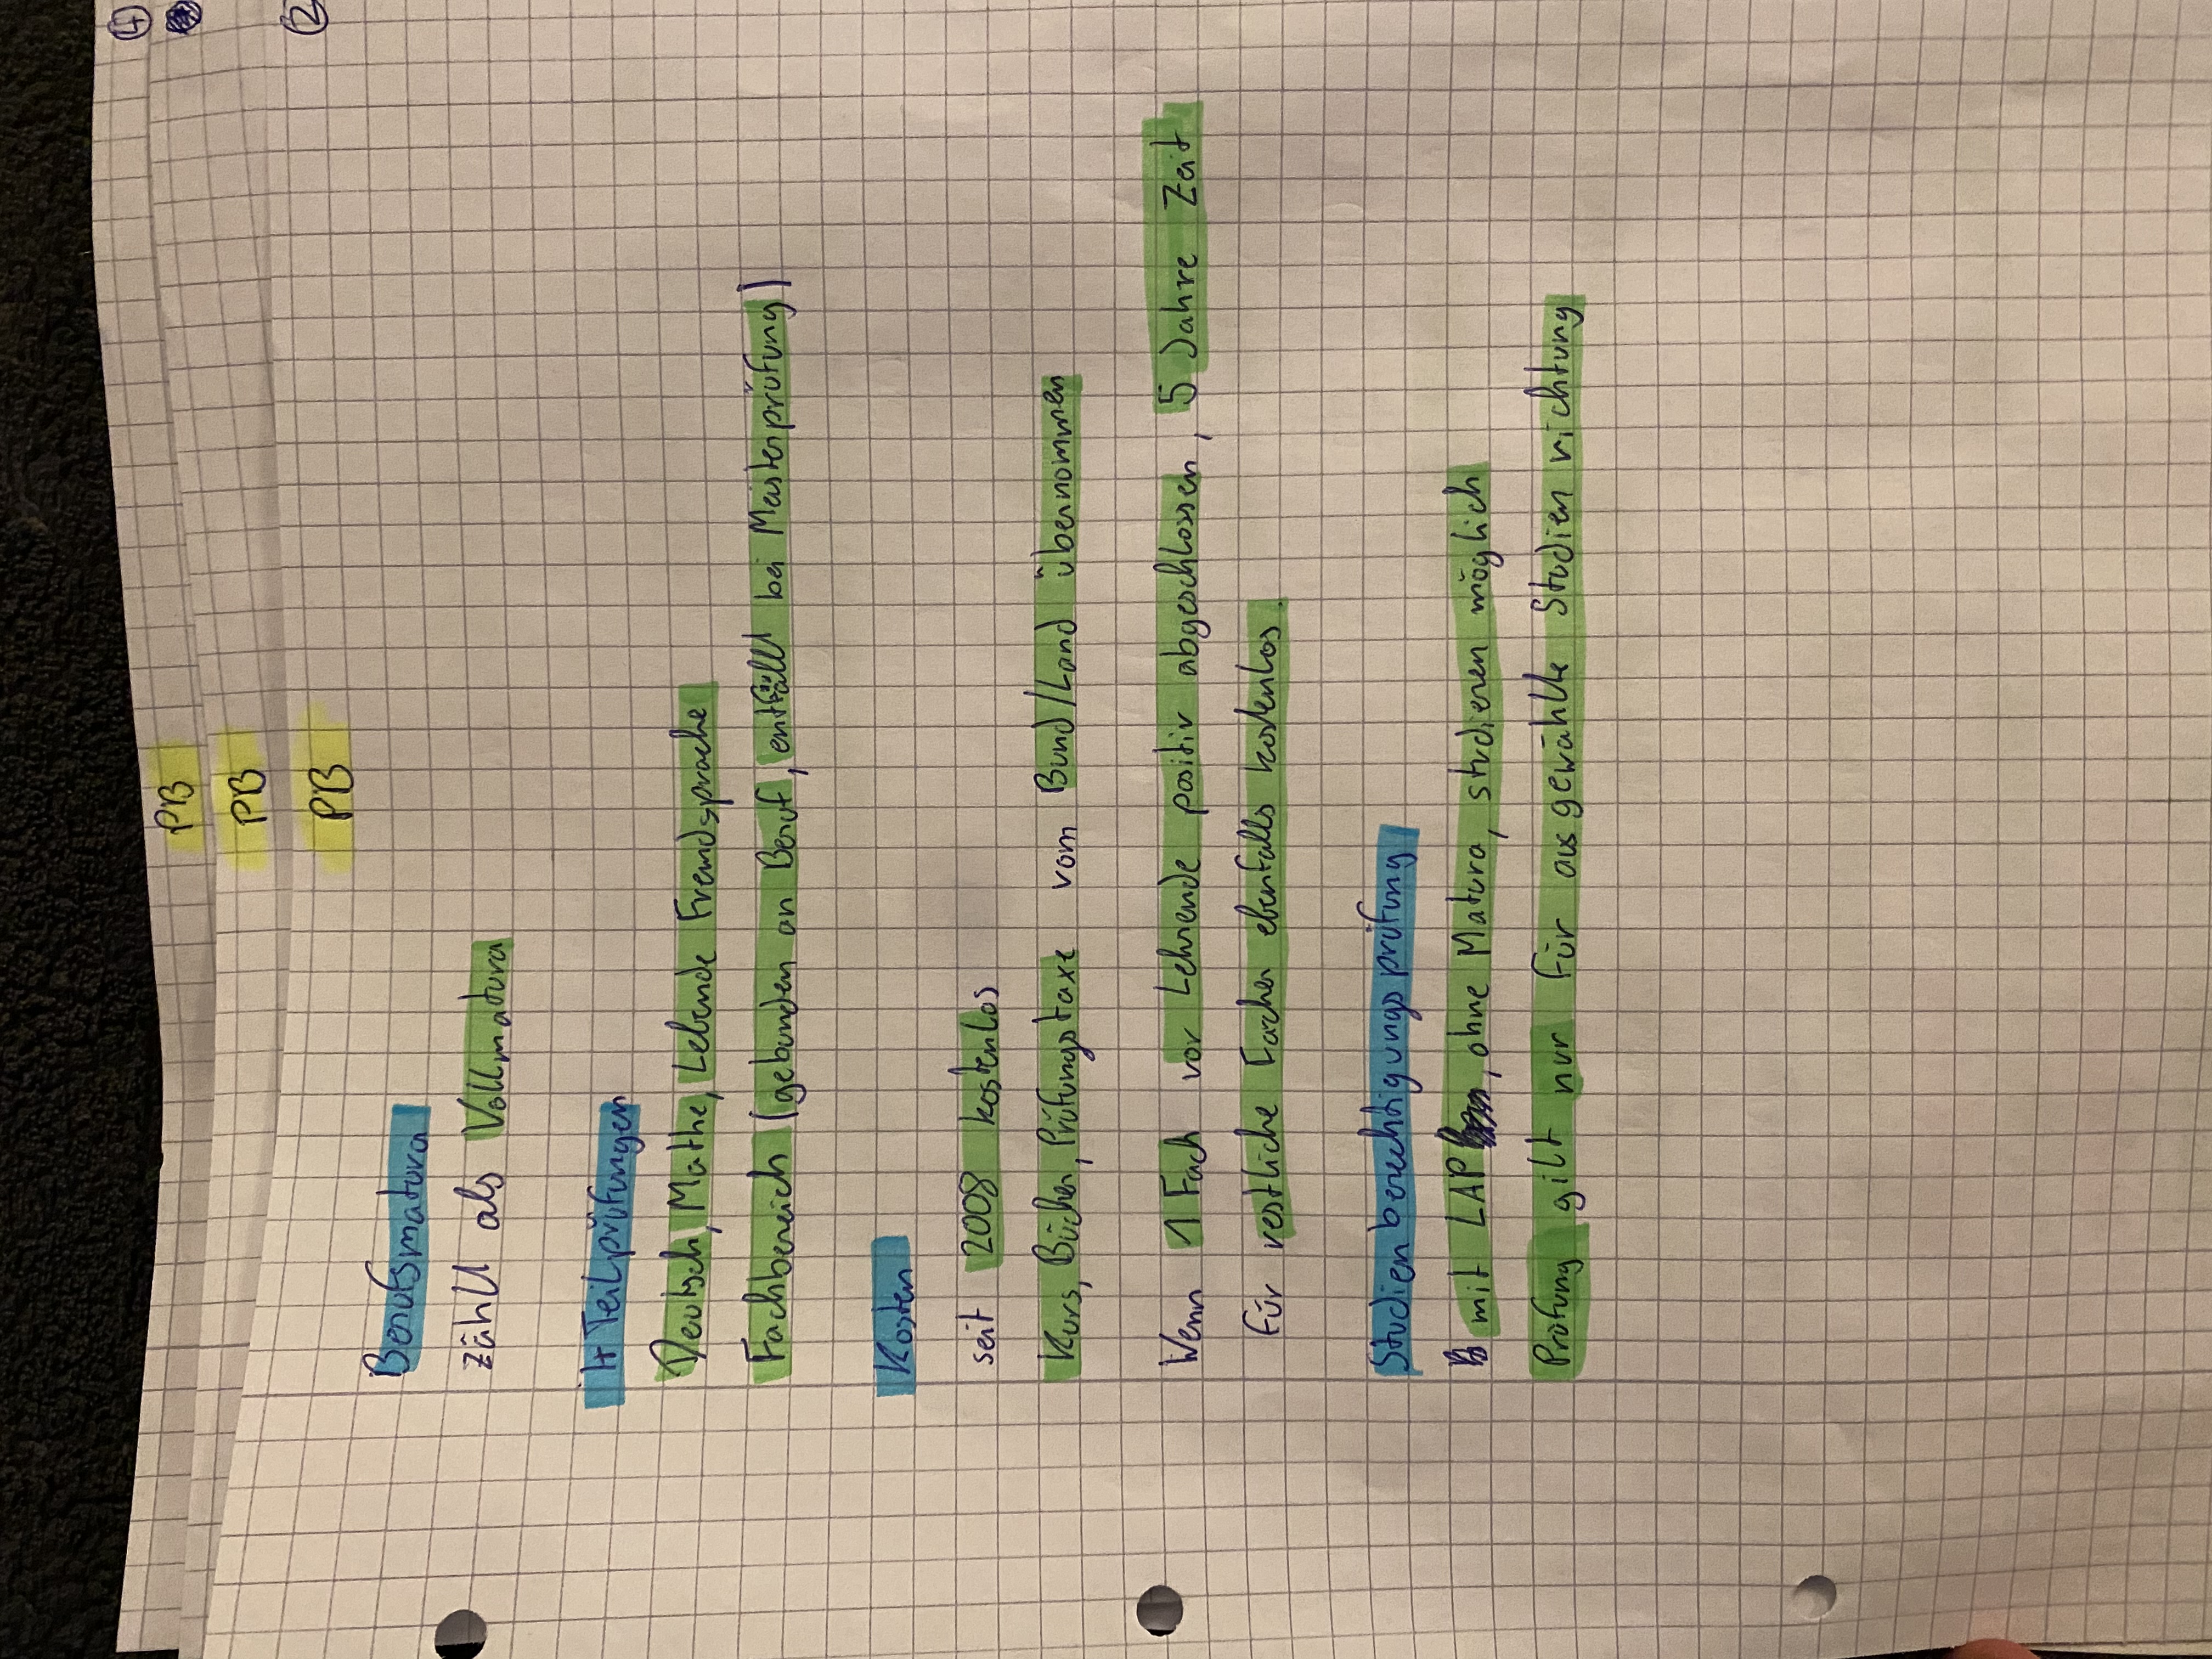 PB
4
PB
PB
2
Berufsmatura
zählt als Vollmatura
4 Teilprüfungen
Deutsch, Mathe, Lebende Fremdsprache
Fachbereich (gebunden an Beruf, entfällt bei Meisterprüfung)
Kosten
seit 2008 kostenlos
Kurs, Bücher, Prüfungstaxe vom Bund/Land übernommen
Wenn 1 Fach vor Lehrende positiv abgeschlossen, 5 Jahre Zeit
für restliche Fächer ebenfalls kostenlos.
Studienberechtigungsprüfung
mit LAP, ohne Matura, studieren möglich
Prüfung gilt nur für ausgewählte Studienrichtung